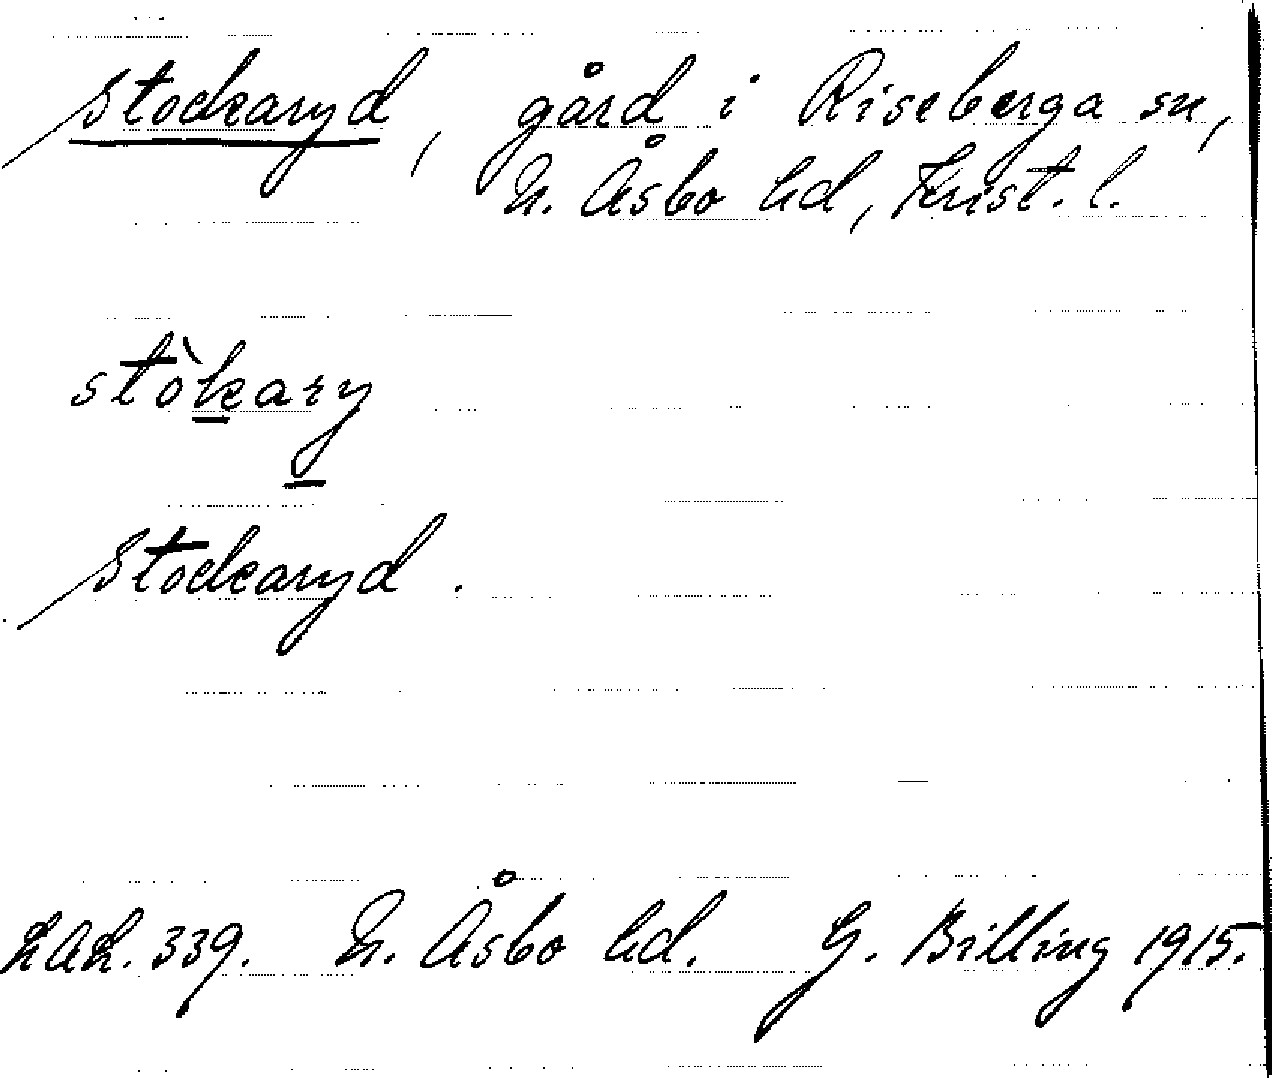 Stockaryd, gård i Riseberga sn,
N. Åsbo hd, Krist. l.
stòkary
Stockaryd.
LAL. 339. N. Åsbo hd. G. Billing 1915.